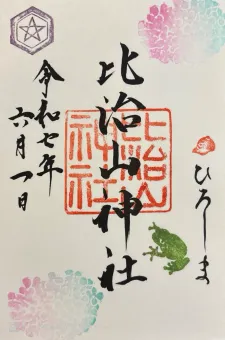 ひろしま
比治山神社
比治山
神社
令和七年
六月一日